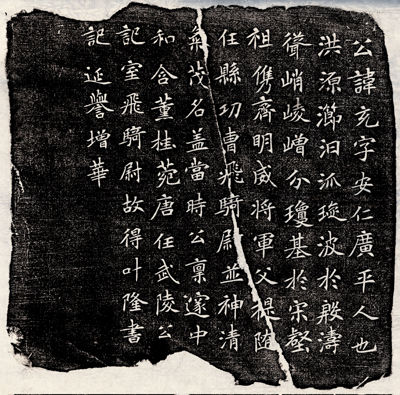 公諱充字安仁廣平人也
洪源瀄汩泒璇波於殷濤
聳峭崚嶒分瓊基於宋壑
祖儁齊明威將軍父禔隨
任縣功曹飛騎尉並神清
氣茂名盖當時公稟邃中
和含董桂苑唐任武陵公
記室飛騎尉故得叶隆書
記延譽增華